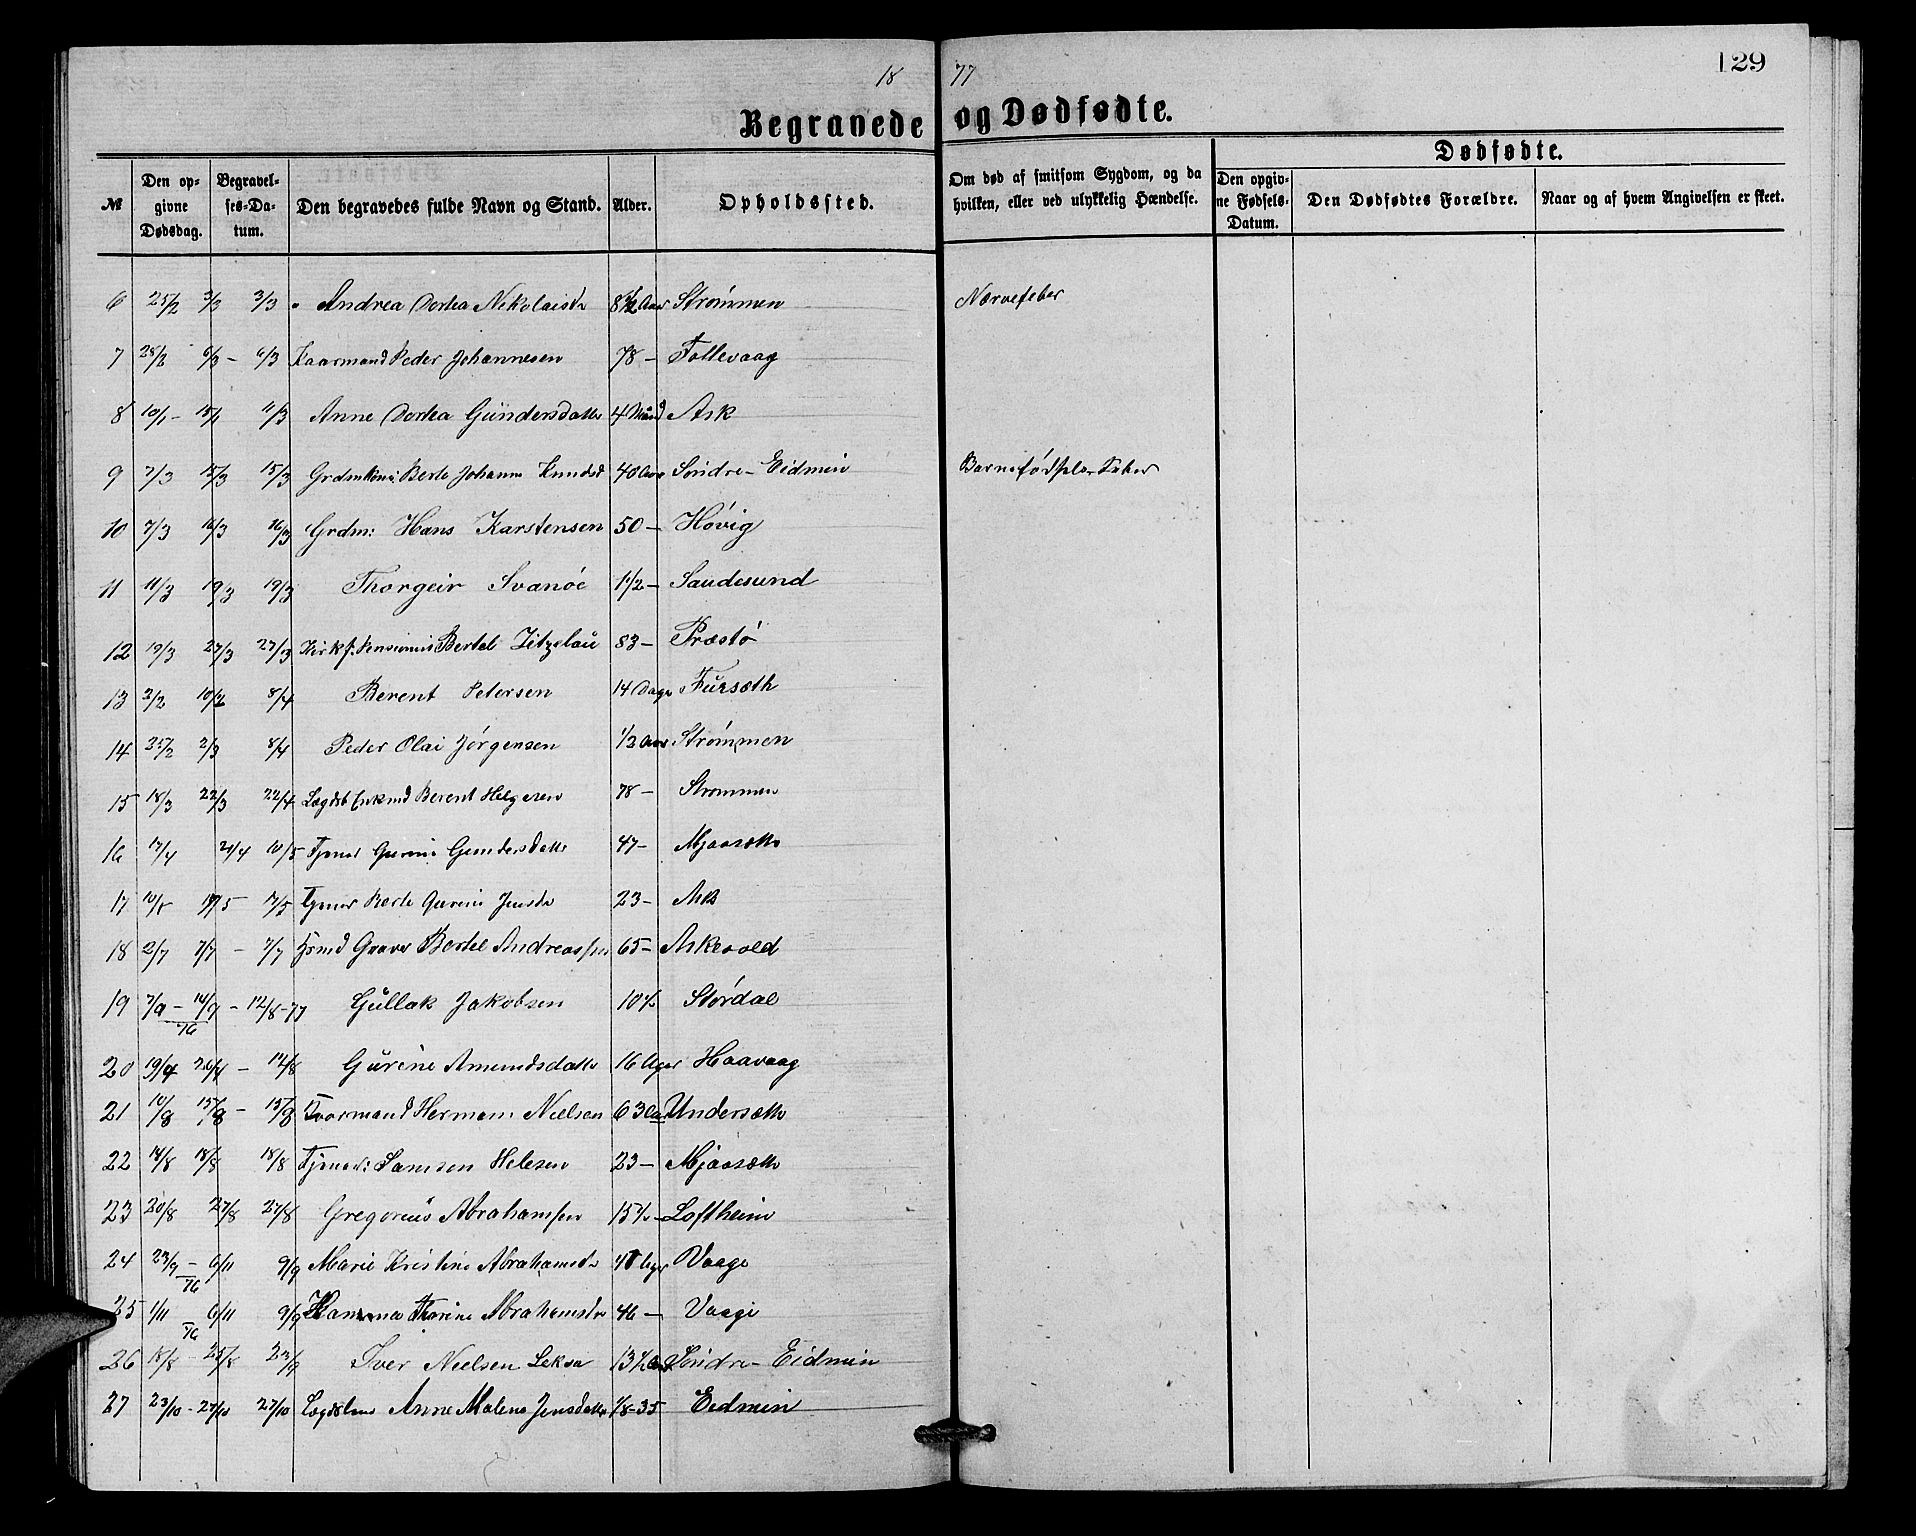 18 77
129
Begravede og Dødfødte.
№ Den opgivne Dødsdag. Begravelses-Datum. Den begravedes fulde Navn og Stand. Alder. Opholdssted. Om død af smitsom Sygdom, og da hvilken, eller ved ulykkelig Hændelse. Dødfødte. Den opgivne Fødsels-Datum. Den Dødfødtes Forældre. Naar og af hvem Angivelsen er skeet.
6 25/2 3/3 3/3 Andrea Dortea Nikolaisdr 8 1/2 Aar Strømmen Nærvefeber
7 28/2 6/3 - 6/3 Kaarmand Peder Johannesen 78 - Follevaag
8 10/1 - 15/1 11/3 Anne Dortea Gündersdatter 4 Maand Ask
9 7/3 15/3 15/3 Grdmkone Berte Johanne Knudsd 40 Aar Søndre-Eidmin Barnefødsels-Feber
10 7/3 16/3 16/3 Grdm: Hans Karstensen 50 - Høvig
11 11/3 19/3 19/3 Thorgeir Svanøe 1 1/2 - Saudesund
12 19/3 27/3 27/3 Bertel Zitzelaü 83 - Præstø
13 2/2 10/2 8/4 Berent Petersen 14 Dage Fürsæth
14 25/2 2/3 8/4 Peder Olai Jørgensen 1/2 Aar Strømmen
15 18/3 22/3 22/4 Lægdsl Enkmd Berent Helgesen 78 - Strømmen
16 17/4 24/4 10/5 Tjener Gurine Gundersdatter 47 - Mjaasæth
17 10/5 17/5 17/5 Tjener Berte Gurine Jensdr 23 - Ask
18 2/7 7/7 - 7/7 Graver Bertel Andreassen 65 - Askevold
19 7/9 - 14/9 76 - 12/8-77 Güllak Jakobsen 10 1/2 Stordal
20 19/4 26/4 - 12/8 Gürine Amundsdatter 16 Uger Haavaag
21 10/8 15/8 - 15/8 Hermann Nielsen 63 Aar Undersæth
22 14/8 18/8 18/8 Tjener: Samson Helesen 23 - Mjaasæth
23 20/8 27/8 27/8 Gregorius Abrahamsen 15 1/2 Loftheim
24 23/9 - 76 6/11 9/9 Marie Kristine Abrahamsdr Uger Vaage
25 1/11 76 6/11 9/9 Thorine Abrahamsdr 46 - Vaage
26 18/8 25/8 23/9 Iver Nielsen Leksa 13 1/2 Aar Søndre-Eidmin
27 23/10 - 27/10 27/10 Lægdslem Anne Malena Jensdatter 1/8-35 Eidmin